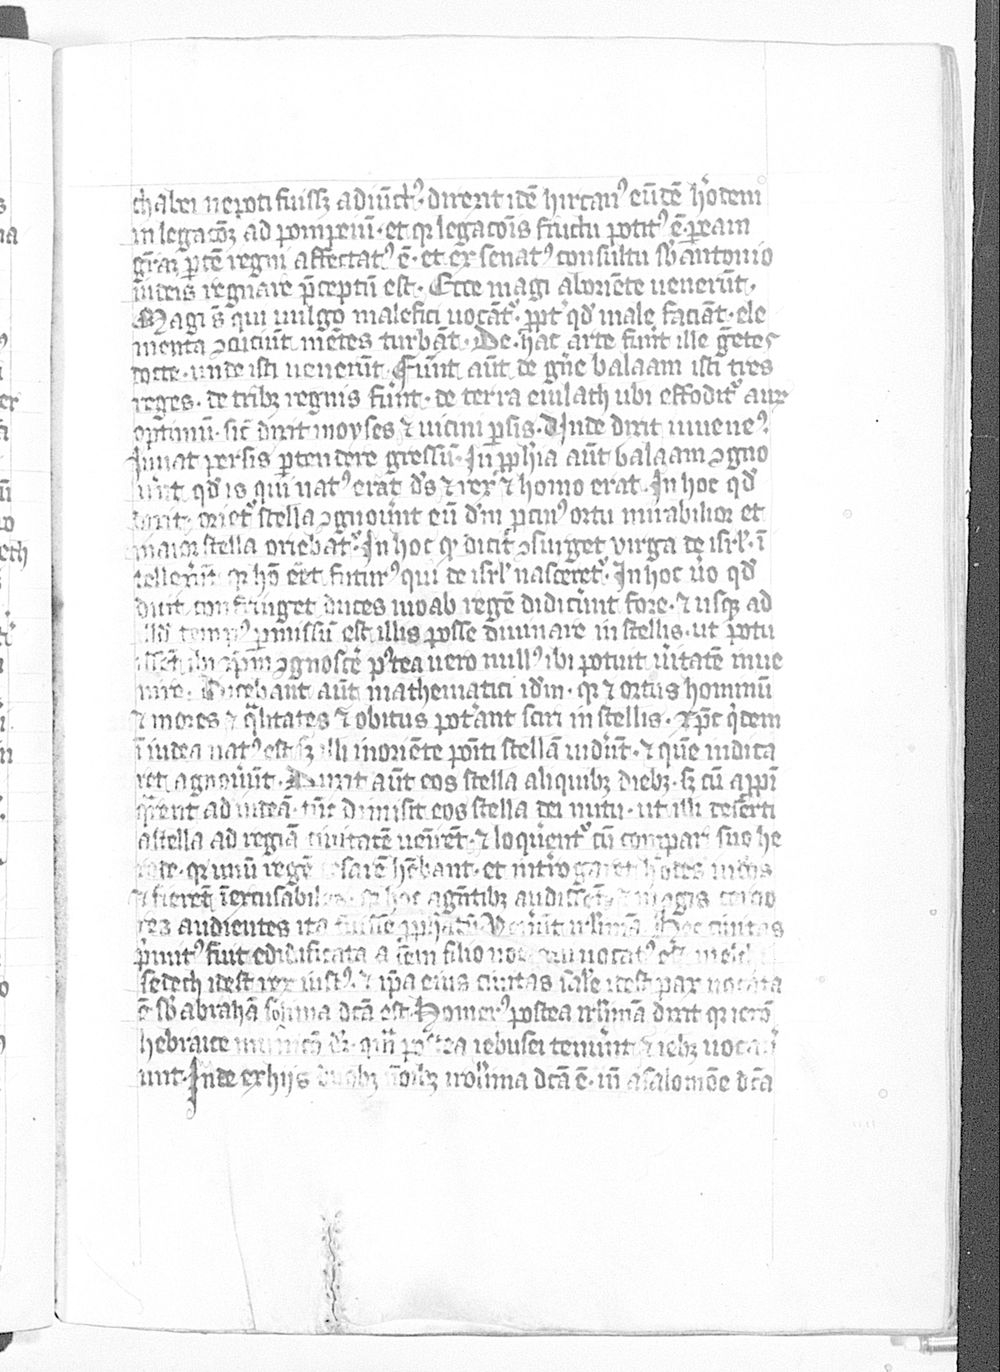 chabei nepoti fuissꝫ adiūctꝰ. dixerit idē hircanꝰ eūdē h̾odem
in legacōꝫ ad pompeiū. et qꝛ legacōis fructu potitꝰ ē. ꝑ eam
gr̄az ꝑtē regni affectatꝰ ē. et ex senatꝰ consultu sb̄ antonio
iudeis regnare p̄ceptū est. Ecce magi ab oriēte uenerūt.
Magi s̄ qui uulgo malefici uocāt᷑. ꝓpt̾ qd̾ male faciāt. ele
menta ꝯcuciūt mētes turbāt. De hac arte fuer̄t ille gētes
docte. unde isti uenerūt. Fuer̄t aūt de gn̄e balaam isti tres
reges. de tribꝫ regnis fuer̄t. de terra euilath ubi effodit᷑ aur
optimū. sic̄ dixit moyses ⁊ uicini ꝑsis. Inde dixit iuuenꝰ.
Iuuat persis ꝑtendere gressū. In ꝓph̄ia aūt balaam ꝯgno
uer̄t qd̾ is qui natꝰ erat d̄s ⁊ rex ⁊ homo erat. In hoc qd̾
dixit. oriet᷑ stella ꝯgnouer̄t eū d̄m ꝑ cuiꝰ ortu mirabilior et
maior stella oriebat᷑. In hoc qꝛ dicit̾ ꝯsurget virga de isrl̾. ī
tellexer̄t qꝛ hō eēt futurꝰ qui de isrl̾ nasceret᷑. In hoc u̾o qd̾
dixit confringet duces moab regē didicer̄t fore. ⁊ usqꝫ ad
illd̾ tempꝰ ꝑmissū est illis posse diuinare in stellis. ut potu
issēt ibi xp̄m ꝯgnoscē pꝰtea uero nullꝰ ibi potuit u̾itatē inue
nire. Dicebant aūt mathematici id̾m. qꝛ ⁊ ortus hominū
⁊ mores ⁊ q̾litates ⁊ obitus pot̾ant sciri in stellis. xp̄c q̾dem
ī iudea natꝰ est sꝫ illi in oriēte pōiti stellā uider̄t. ⁊ quē indica
ret agnouer̄t. Duxit aūt eos stella aliquibꝫ diebꝫ. sꝫ cū appī
q̾rent ad iudeā. tūc dimisit eos stella dei nutu. ut illi des̾erti
a stella ad regiā ciuitatē uenirēt. ⁊ loquerent᷑ cū compari suo he
rode. qꝛ unū regē cesarē hēbant. et int̾rogaret h̾odes iudeis
⁊ fierēt īexcusabiles. qꝛ hoc agētibꝫ audissēt ⁊ magis cercio
res audientes ita fuisse ꝓph̄atū. Uener̄t irlimā. Hec ciuitas
p̾mitꝰ fuit edidificata a sem filio noe qui uocatꝰ est melchi
sedech idest rex iustꝰ. ⁊ ip̄a eius ciuitas salē idest pax uocata
ē sb̄ abrahā solima dc̄a est. Homerꝰ postea irlimā dixit qꝛ ierō
hebraice d̄r. pꝰtea iebusei tenuer̄t ⁊ iebꝫ uocauer̄
unt. Inde ex hijs duobꝫ nōibꝫ irolima dc̄a ē. iū a salomōe dc̄a